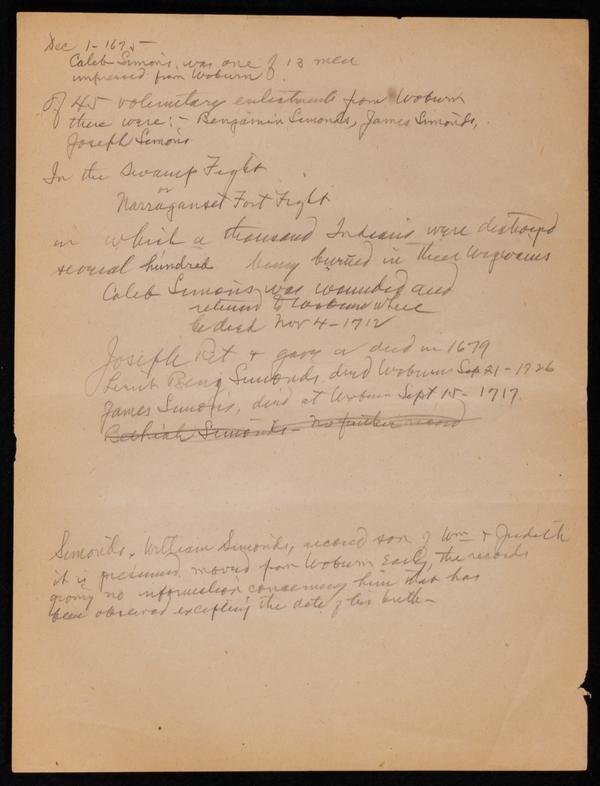 Dec 1-1675-
Caleb Simons, was one of 13 men
impressed from Woburn.
Of 45 voluntary enlistments from Woburn
there were:- Benjamin Simonds, James Simonds,
Joseph Simons.
In the Swamp Fight
or
Narraganset Fort Fight
in which a thousand Indians were destroyed
several hundred being burned in their Wigwams
Caleb Simons was wounded and
returned to Woburn where
he died Nov 4-1712
Joseph Ret & gave a deed in 1679
Lieut Benj Simonds died Woburn Sep 21-1726
James Simonds, died at Woburn Sept 15-1717.
Bethiah Simonds - No further record
Simonds, William Simonds, second son of Wm & Judith
it is presumed moved from Woburn Early, the records
giving no information concerning him that has
been observed excepting the date of his birth-